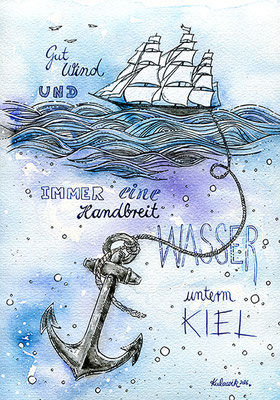 Gut
Wind
UND
IMMER eine
Handbreit
WASSER
unterm
KIEL